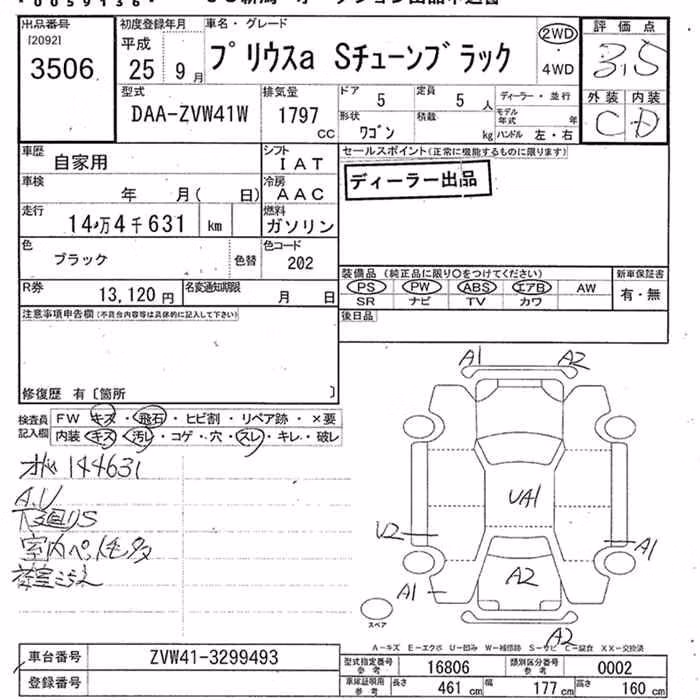 出品番号
[2092]
3506
初度登録年月
平成
25 9月
車名・グレード
プリウスa Sチューンブラック
2WD
・
4WD
評価点
3.5
外装 内装
C D
型式
DAA-ZVW41W
排気量
1797
CC
ドア 5
定員 5 人
ディーラー・並行
形状
ワゴン
積載
kg
モデル
年式 年
ハンドル 左・右
車歴
自家用
シフト
IAT
セールスポイント(正常に機能するものに限ります)
ディーラー出品
車検
年 月( 日)
冷房
AAC
走行
14万4千631 km
燃料
ガソリン
色
ブラック
色替
色コード
202
装備品(純正品に限り○をつけてください)
新車保証書
PS PW ABS エアB AW
SR ナビ TV カワ
有・無
R券
13,120 円
名変通知期限
月 日
後日品
注意事項申告欄(不具合内容等は具体的に記入して下さい)
修復歴 有〔箇所 〕
検査員
記入欄
FW キズ・飛石・ヒビ割・リペア跡・×要
内装 キズ・汚レ・コゲ・穴・スレ・キレ・破レ
144631
下廻りS
室内ペット毛多
A1 A2
UA1
U2
A1
A1
A2
A2
スペア
A-キズ E-エクボ U-凹み W-補修跡 S-サビ C-腐食 XX-交換済
車台番号
ZVW41-3299493
登録番号
型式指定番号
参考
16806
類別区分番号
参考
0002
車庫証明用
参考
長さ 461 cm
幅 177 cm
高さ 160 cm